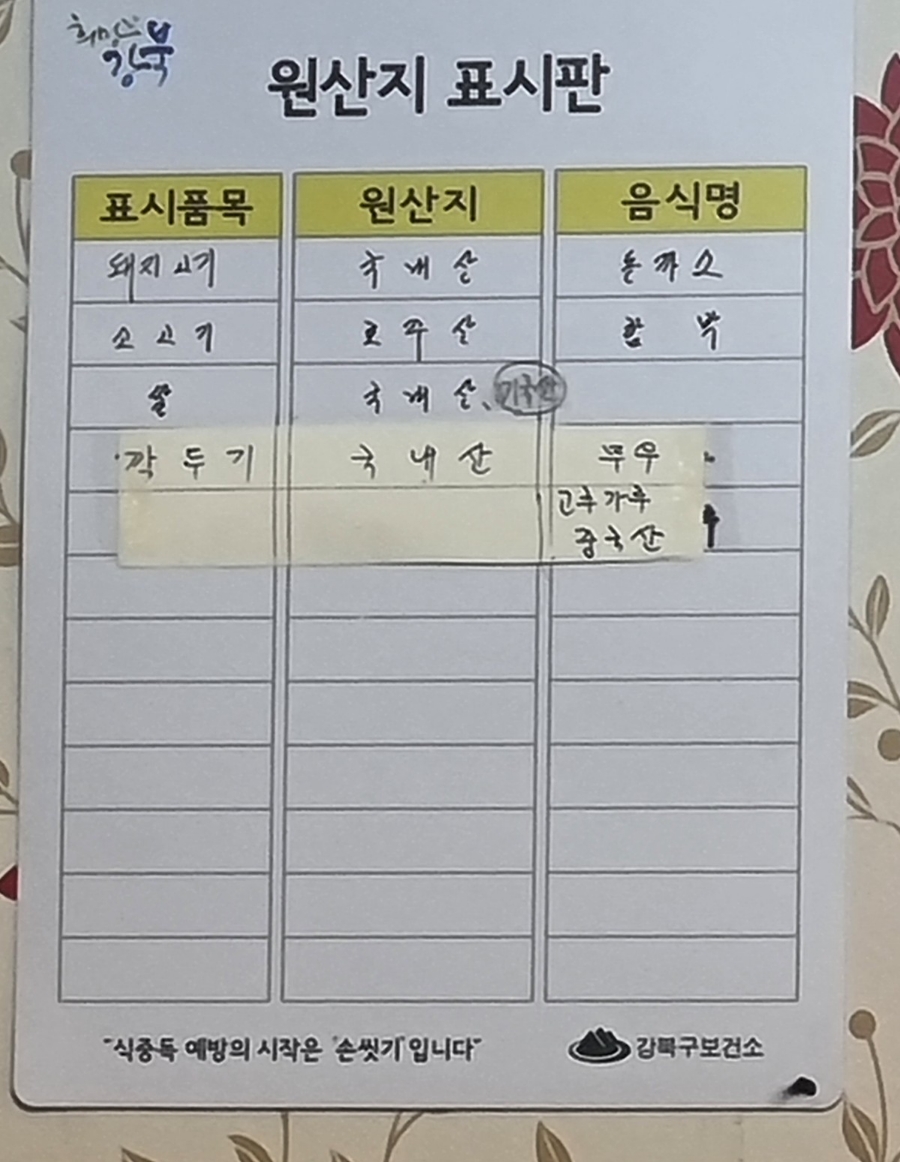 희망 강북
원산지 표시판
표시품목 원산지 음식명
돼지고기 국내산 돈까스
소고기 호주산 함박
쌀 국내산, 미국산
깍두기 국내산 무우
고추가루
중국산
"식중독 예방의 시작은 '손씻기'입니다"
강북구보건소